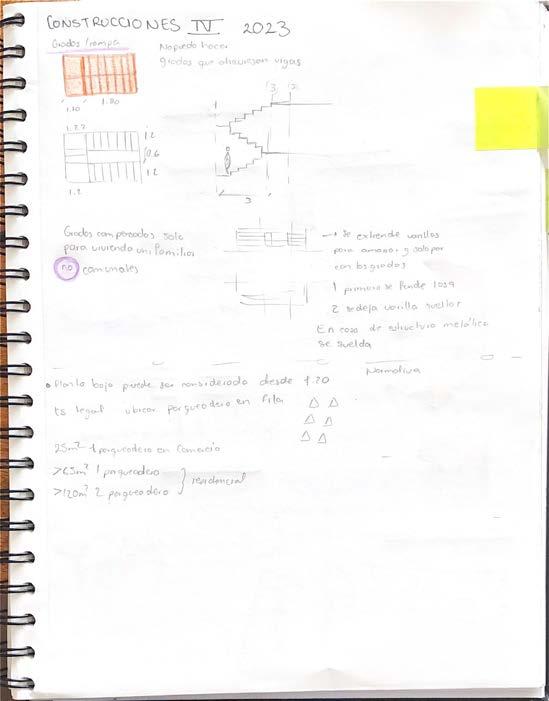 CONSTRUCCIONES IV 2023
Gradas / rampa
No puedo hacer
gradas que atraviesen vigas
1.20 1.80
1.22
1.2
0.6
1.2
1.2
1
3 2
3
Gradas compensadas solo
para vivienda unifamiliar
no comunales
→ se extiende varillas
para amarrar y soldar
con las gradas
1 primero se funde losa
2 se deja varilla suelta
En caso de estructura metálica
se suelda
Normativa
• Planta baja puede ser considerada desde 1.20
Es legal ubicar parqueadero en fila
25m² 1 parqueadero en Comercio
>65m² 1 parqueadero
>120m² 2 parqueadero
residencial